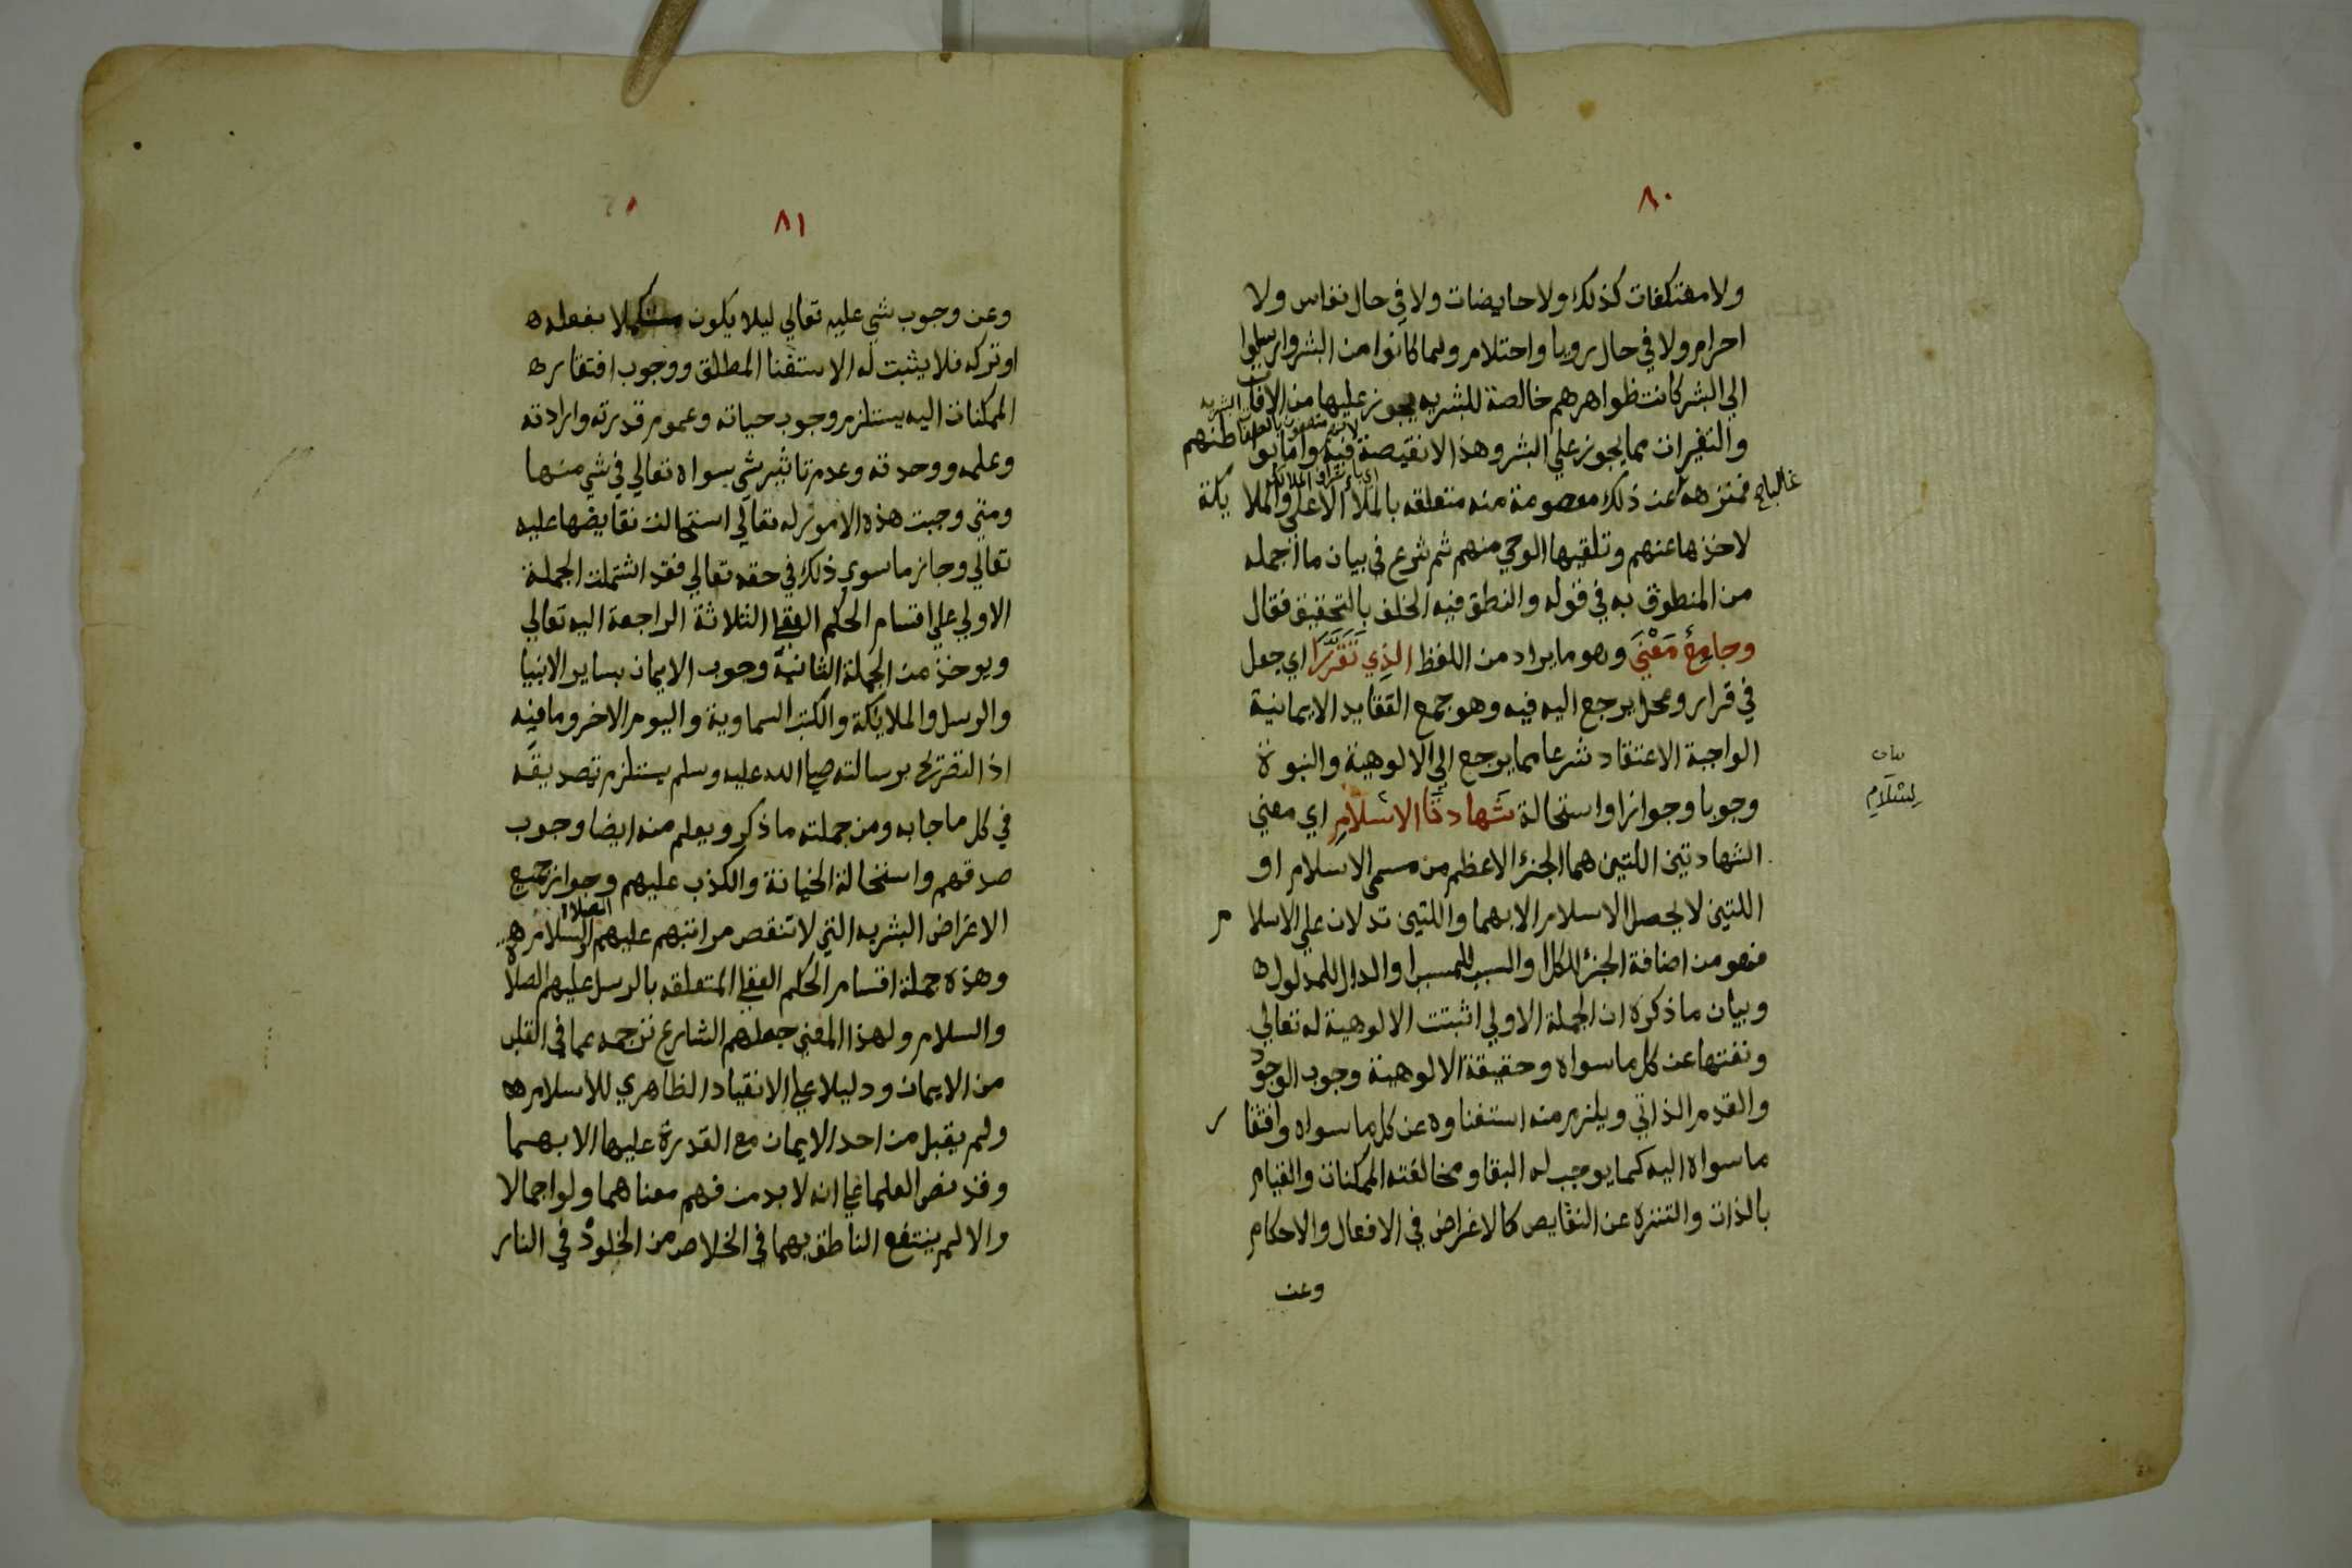 ٨٠
ولا معتكفات كذلك ولا حايضات ولا في حال نفاس ولا
احرام ولا في حال رويا واحتلام ولما كانوا من البشر وارسلوا
الي البشر كانت ظواهرهم خالصة للبشريه يجوز عليها من الافات
والتغيرات مما يجوز علي البشر وهذا لا نقيصة فيه واما بواطنهم
غالبا فمنزهة عن ذلك معصومة منه متعلقه بالملأ الاعلي والملايكة
لاخذها عنهم وتلقيها الوحي منهم ثم شرع في بيان ما اجمله
من المنطوق به في قوله والنطق فيه الخلف بالتحقيق فقال
وجامع معني وهو ما يراد من اللفظ الذي تقررا اي جعل
في قرار ومحل يرجع اليه فيه وهو جمع العقايد الايمانية
الواجبة الاعتقاد شرعا مما يرجع الي الالوهية والنبوة
وجوبا وجوازا واستحالة شهادتا الاسلام اي معني
الشهادتين اللتين هما الجزء الاعظم من مسمي الاسلام او
اللتين لا يحصل الاسلام الا بهما واللتين تدلان علي الاسلام
فهو من اضافة الجزء للكل او السبب للمسبب او الدال للمدلول ه
وبيان ما ذكره ان الجملة الاولي اثبتت الالوهية له تعالي
ونفتها عن كل ما سواه وحقيقة الالوهية وجوب الوجود
والقدم الذاتي ويلزم منه استغناوه عن كل ما سواه وافتقار
ما سواه اليه كما يوجب له البقا ومخالفته الممكنات والقيام
بالذات والتنزه عن النقايص كالاغراض في الافعال والاحكام
وعن
٨١
وعن وجوب شي عليه تعالي ليلا يكون مستكملا بفعله ه
او تركه فلا يثبت له الاستغنا المطلق ووجوب افتقار ه
الممكنات اليه يستلزم وجوب حياته وعموم قدرته وارادته
وعلمه ووحدته وعدم تاثير شي سواه تعالي في شي منها
ومتي وجبت هذه الامور له تعالي استحالت نقايضها عليه
تعالي وجاز ما سوي ذلك في حقه تعالي فقد اشتملت الجملة
الاولي علي اقسام الحكم العقلي الثلاثة الراجعة اليه تعالي
ويوخذ من الجملة الثانية وجوب الايمان بساير الانبيا
والرسل والملايكة والكتب السماوية واليوم الاخر وما فيه
اذ التصريح برسالته صلي الله عليه وسلم يستلزم تصديقه
في كل ما جا به ومن جملته ما ذكر ويعلم منه ايضا وجوب
صدقهم واستحالة الخيانة والكذب عليهم وجواز جميع
الاعراض البشريه التي لا تنقص مراتبهم عليهم الصلاة والسلام ه
وهذه جملة اقسام الحكم العقلي المتعلقه بالرسل عليهم الصلاة
والسلام ولهذا المعني جعلهم الشارع ترجمه عما في القلب
من الايمان ودليلا علي الانقياد الظاهري للاسلام ه
ولم يقبل من احد الايمان مع القدرة عليها الا بهما
وقد نص العلما علي انه لا بد من فهم معناهما ولو اجمالا
والا لم ينتفع الناطق بهما في الخلاص من الخلود في النار